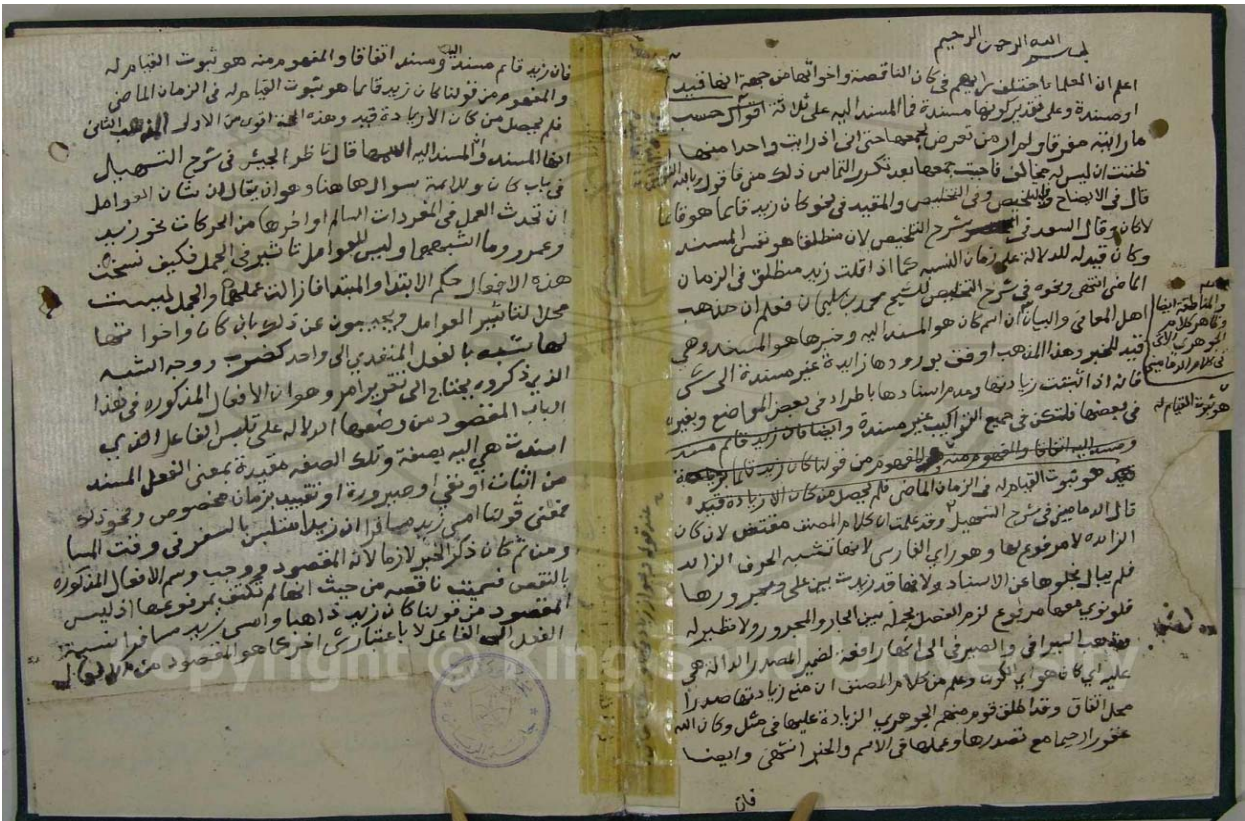 بسم الله الرحمن الرحيم
اعلم ان العلما اختلف رايهم في كان الناقصة واخواتها من جهة انها قيد
او مسندة وعلى تقدير كونها مسندة فما المسند اليه على ثلاثة اقوال حسب
ما رايته مفرقا ولم ار من تعرض لجمعها حتى اني اذ رايت واحدا منها
ظننت ان ليس له مخالف فاحببت جمعها بعد تكرر التماس ذلك مني فاقول وبالله
قال في الايضاح والتلخيص وفي التلخيص والمقيد في نحو كان زيد قايما هو قايما
لا كان وقال السعد في شرح التلخيص لان منطلقا هو نفس المسند
وكان قيد له للدلالة على زمان النسبة كما اذا قلت زيد منطلق في الزمان
الماضي انتهى ونحوه في شرح التلخيص للشيخ محمد بن سليمان فعلم ان مذهب
اهل المعاني والبيان ان اسم كان هو المسند اليه وخبرها هو المسند وهي
قيد للخبر وهذا المذهب اوفق بورودها زايدة غير مسندة الى شي
فانه اذا ثبتت زيادتها وعدم اسنادها باطراد في بعض المواضع وبغيره
في بعضها فلتكن في جميع التراكيب غير مسندة وايضا فان زيد قايم مسند
ومسند اليه اتفاقا والمفهوم منه هو المفهوم من قولنا كان زيد قايما بزيادة
قيد هو ثبوت القيام له في الزمان الماضي فلم يحصل من كان الا زيادة قيد
قال الدماميني في شرح التسهيل وقد علمت ان كلام المصنف مقتض لان كان
الزائده لا مرفوع لها وهو راي الفارسي لانها تشبه الحرف الزائد
فلم يبال بخلوها عن الاسناد ولانها قد زيدت بين على ومجرورها
فلو نوي معها مرفوع لزم الفصل بجملة بين الجار والمجرور ولا نظير له
ومذهب السيرافي والصيمري الى انها رافعة لضمير المصدر الدالة هي
عليه اي كان هو اي الكون وعلم من كلام المصنف ان منع زيادتها صدرا
محل اتفاق وقد اطلق قوم منهم الجوهري الزيادة عليها في مثل وكان الله
غفورا رحيما مع تصدرها وعملها في الاسم والخبر انتهى وايضا
فان
والمناطقة ايضا
وظاهر كلام
الجوهري الاتي
في كلام الدماميني
هو ثبوت القيام له
فان زيد قايم مسند اليه ومسند اتفاقا والمفهوم منه هو ثبوت القيام له
والمفهوم من قولنا كان زيد قايما هو ثبوت القيام له في الزمان الماضي
فلم يحصل من كان الا زيادة قيد وهذه الحجة اقوى من الاولى المذهب الثاني
انها المسند والمسند اليه اسمها قال ناظر الجيش في شرح التسهيل
في باب كان وللائمة سوال هاهنا وهو ان يقال ان شان العوامل
ان تحدث العمل في المفردات السالم اواخرها من الحركات نحو زيد
وعمرو وما اشبههما وليس للعوامل تاثير في الجمل فكيف نسخت
هذه الافعال حكم الابتدا والمبتدا فازالت عملهما والجمل ليست
محلا لتاثير العوامل ويجيبون عن ذلك بان كان واخواتها
لها شبه بالفعل المتعدي الى واحد كضرب ووجه الشبه
الذي ذكروه يحتاج الى تقرير امر وهو ان الافعال المذكوره في هذا
الباب المقصود من وضعها الدلاله على تلبس الفاعل الذي
اسندت هي اليه بصفة وتلك الصفه مقيدة بمعنى الفعل المسند
من اثبات او نفي او صيرورة او تقييد بزمان مخصوص ونحو ذلك
فمعنى قولنا امسى زيد مسافرا ان زيدا متلبس بالسفر في وقت المسا
ومن ثم كان ذكر الخبر لازما لانه المقصود ووجب وسم الافعال المذكوره
بالنقص فسميت ناقصه من حيث انها لم تكتف بمرفوعها اذ ليس
المقصود من قولنا كان زيد ذاهبا وامسى زيد مسافرا نسبة
الفعل الى الفاعل لا باعتبار شي اخر كما هو المقصود من
Copyright © King Saud University